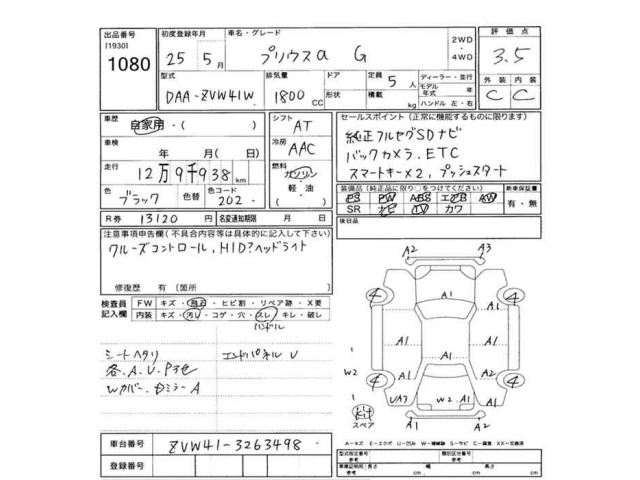 出品番号
[1930]
1080
初度登録年月
25年 5月
車名・グレード
プリウスα G
2WD
・
4WD
評価点
3.5
型式
DAA-ZVW41W
排気量
1800 CC
ドア
形状
定員 5人
積載 kg
ディーラー・並行
モデル年式 年
ハンドル 左・右
外装 内装
C C
車歴
自家用・( )
シフト
AT
車検
年 月( 日)
冷房
AAC
走行
12万9千938 km
燃料
ガソリン
・
軽・油
色
ブラック
色替
色コード
202
( )
R券 13120 円
名変通知期限 月 日
セールスポイント(正常に機能するものに限ります)
純正フルセグSDナビ
バックカメラ、ETC
スマートキー×2、プッシュスタート
装備品(純正品に限り○をつけてください)
新車保証書
PS PW ABS エアB AW
SR ナビ TV カワ
有・無
後日品
注意事項申告欄(不具合内容等は具体的に記入して下さい)
クルーズコントロール、HID?ヘッドライト
修復歴 有〔箇所 〕
検査員記入欄
FW キズ・飛石・ヒビ割・リペア跡・X要
内装 キズ・汚レ・コゲ・穴・スレ・キレ・破レ
ハンドル
シートヘタリ
エンドパネル U
各.A.U.P3色
Wカバー、Dミラー A
A2 A3
4 A1 4
A1
A1 A1 A1
W2
A1 A1 A2
4 4
UA3 W2 A1 A1
スペア
A1 A2
A-キズ E-エクボ U-凹み W-補修跡 S-サビ C-腐食 XX-交換済
車台番号 ZVW41-3263498
登録番号
型式指定番号 参考
類別区分番号 参考
車検証明記載 参考 長さ cm 幅 cm 高さ cm